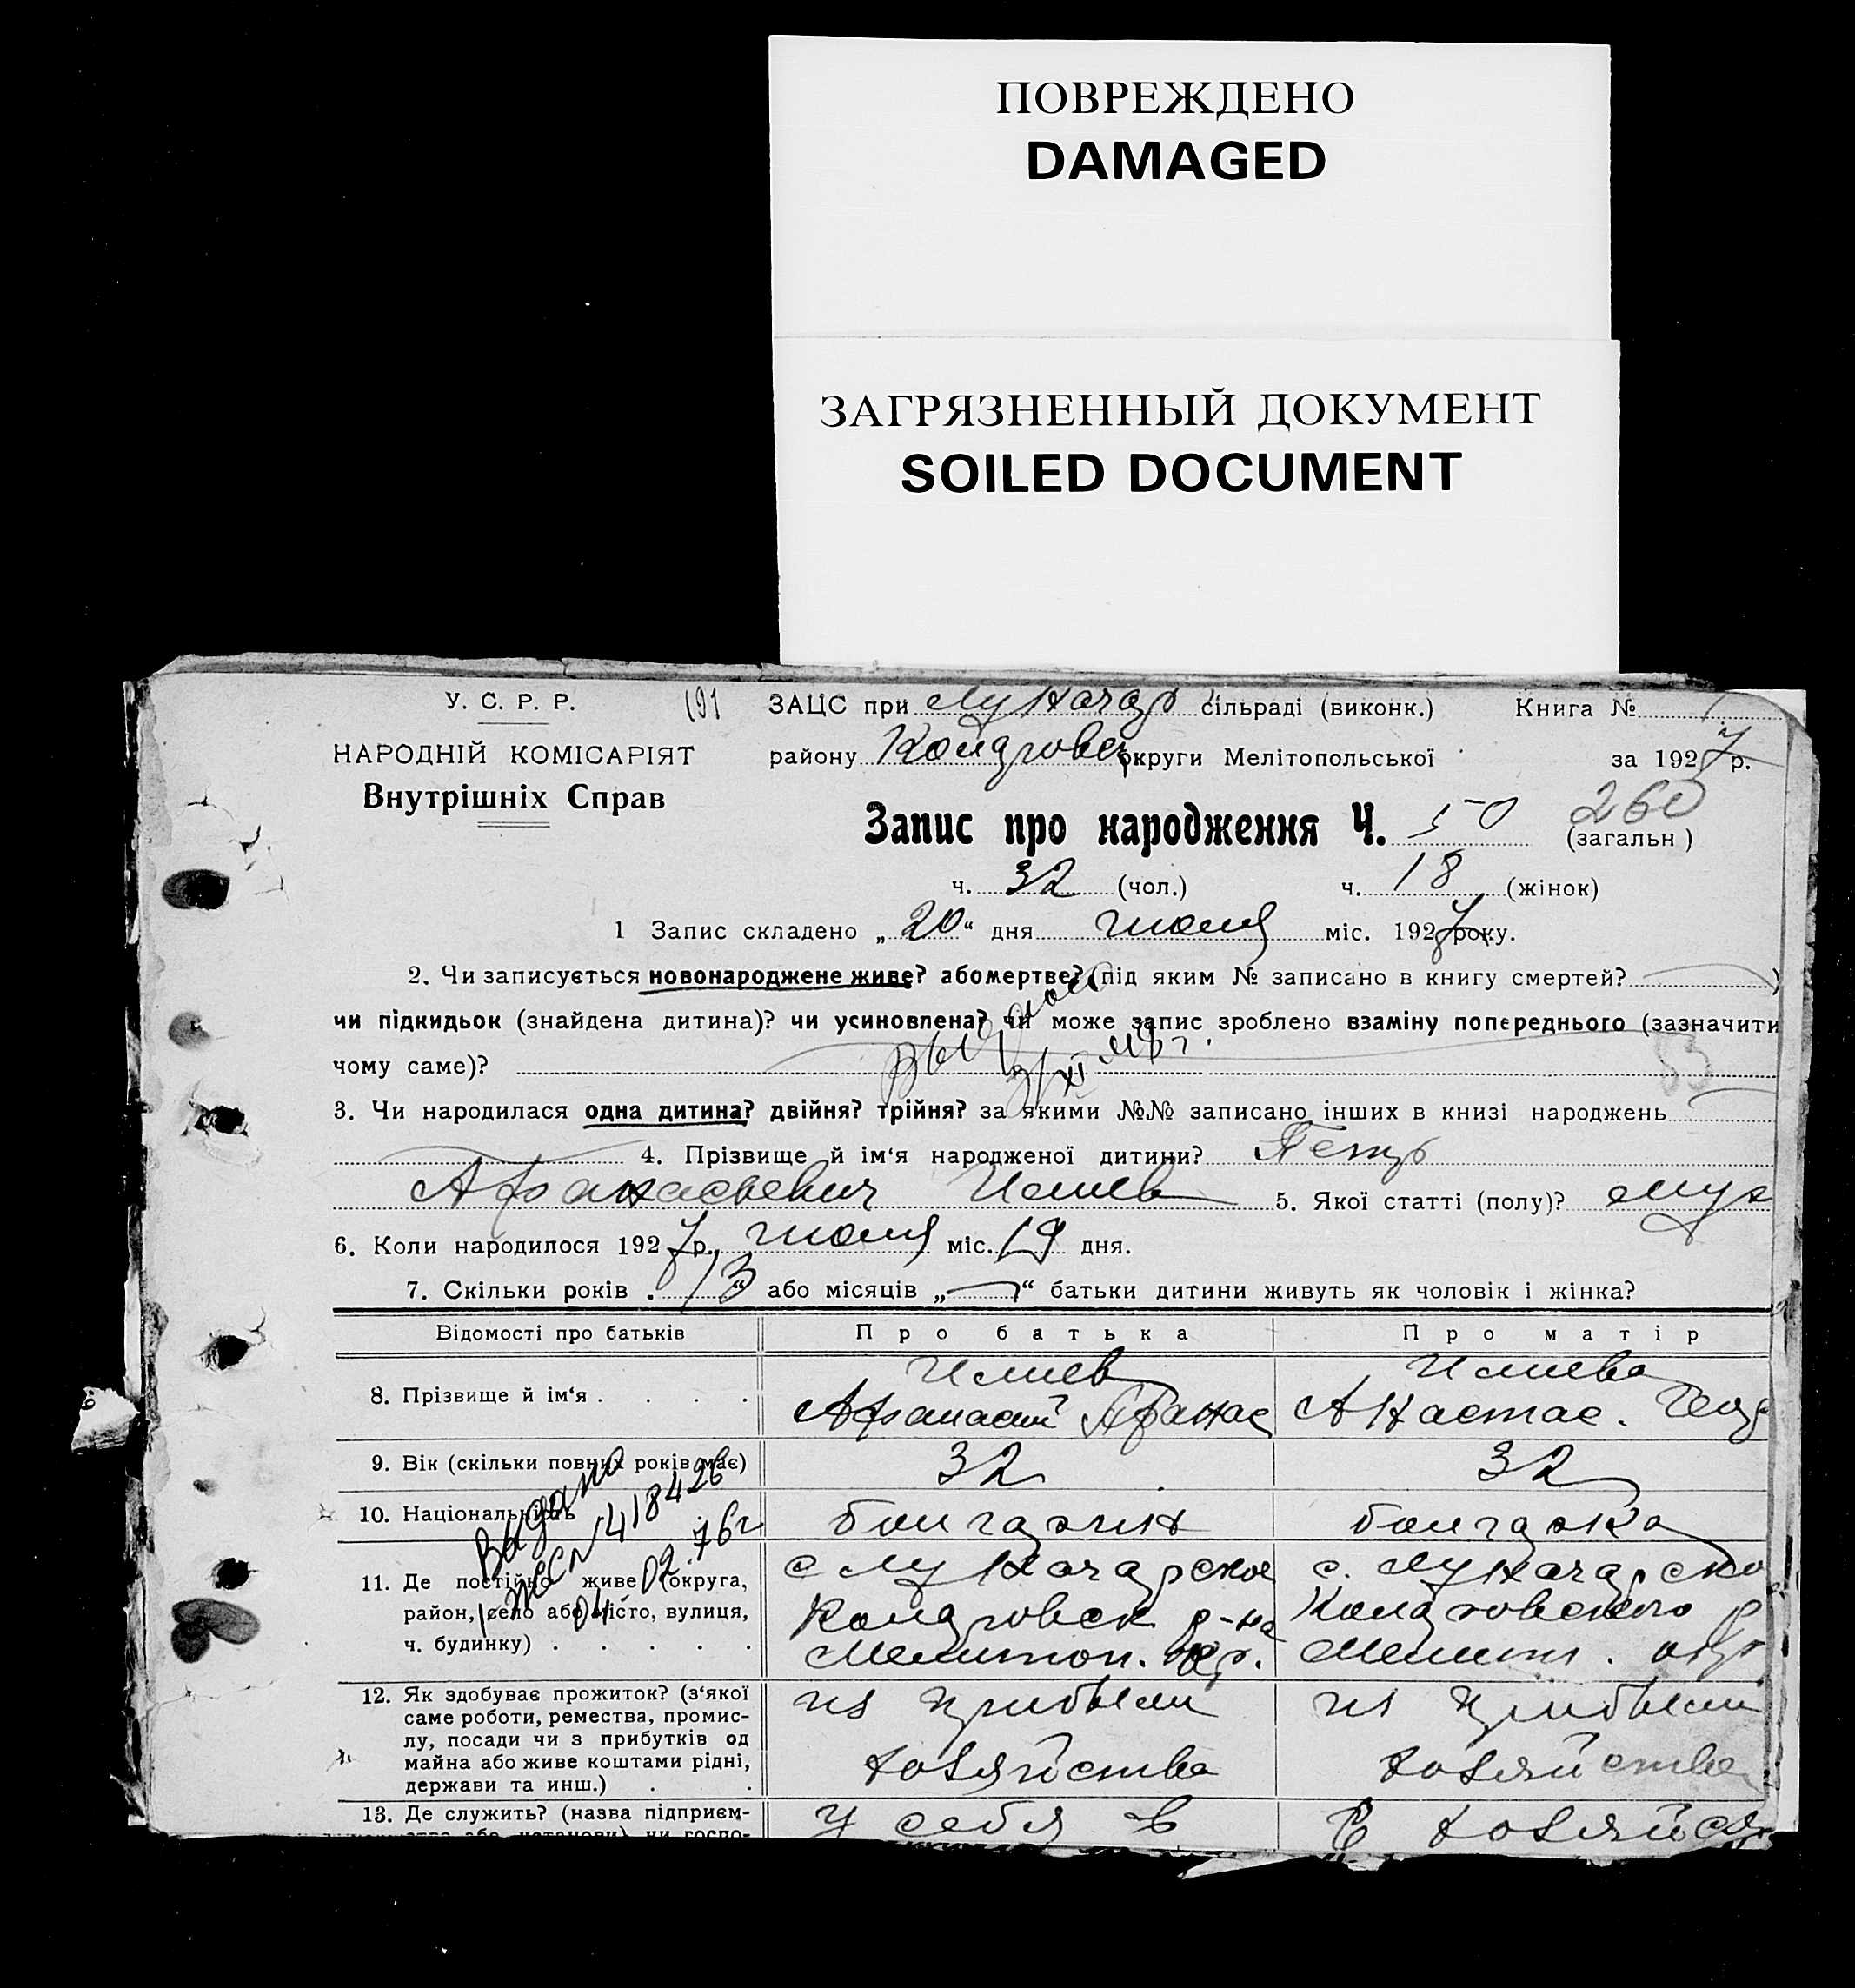 ПОВРЕЖДЕНО
DAMAGED
ЗАГРЯЗНЕННЫЙ ДОКУМЕНТ
SOILED DOCUMENT
У. С. Р. Р.
191
ЗАЦС при Луначар сільраді (виконк.) Книга № 1
НАРОДНІЙ КОМІСАРІЯТ
району округи Мелітопольської за 1927 р.
Внутрішніх Справ
260
Запис про народження Ч. 50 (загальн)
ч. 32 (чол.) ч. 18 (жінок)
1 Запис складено „20“ дня июля міс. 1927 року.
2. Чи записується новонароджене живе? або мертве? (під яким № записано в книгу смертей?)
чи підкидьок (знайдена дитина)? чи усиновлена? чи може запис зроблено взаміну попереднього (зазначити
чому саме)?
53
3. Чи народилася одна дитина? двійня? трійня? за якими №№ записано інших в книзі народжень
4. Прізвище й ім‘я народженої дитини? Петр
Афанасьевич Илиев 5. Якої статті (полу)? муж
6. Коли народилося 1927 р. июля міс. 19 дня.
7. Скільки років . 13 “ або місяців „ “ батьки дитини живуть як чоловік і жінка?
Відомості про батьків Про батька Про матір
8. Прізвище й ім‘я . . . . Илиев Афанасий Афанас Илиева Анастас. Геор
9. Вік (скільки повних років має) 32 32
10. Національність болгарин болгарка
Выдано
418426
04.02.76г
11. Де постійно живе (округа,
район, село або місто, вулиця,
ч. будинку) . . . . .
с Луначарское
р-на
Мелитоп. окр.
с. Луначарско
Мелит. окр
12. Як здобуває прожиток? (з‘якої
саме роботи, ремества, промис-
лу, посади чи з прибутків од
майна або живе коштами рідні,
держави та инш.) . .
из прибыли
хозяйства
из прибыли
хозяйства
13. Де служить? (назва підприєм- у себя в в хозяйс